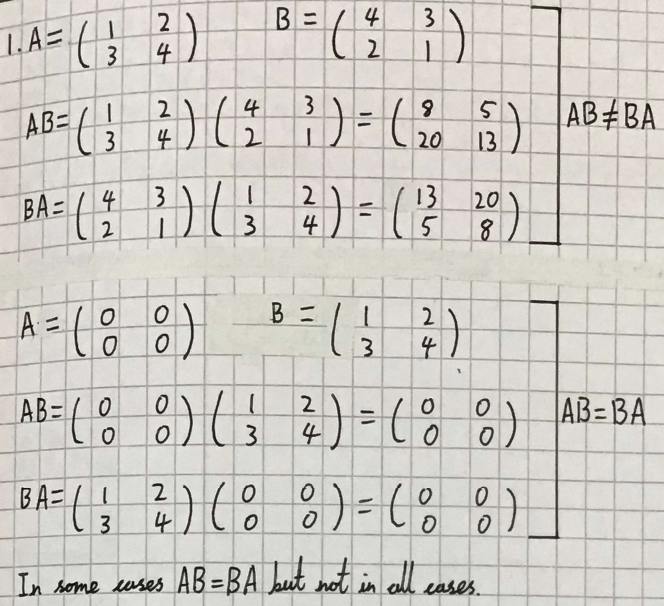 1. A = ( 1 2 ; 3 4 ) B = ( 4 3 ; 2 1 )
AB = ( 1 2 ; 3 4 ) ( 4 3 ; 2 1 ) = ( 8 5 ; 20 13 )
AB ≠ BA
BA = ( 4 3 ; 2 1 ) ( 1 2 ; 3 4 ) = ( 13 20 ; 5 8 )
A = ( 0 0 ; 0 0 ) B = ( 1 2 ; 3 4 )
AB = ( 0 0 ; 0 0 ) ( 1 2 ; 3 4 ) = ( 0 0 ; 0 0 )
AB = BA
BA = ( 1 2 ; 3 4 ) ( 0 0 ; 0 0 ) = ( 0 0 ; 0 0 )
In some cases AB = BA but not in all cases.